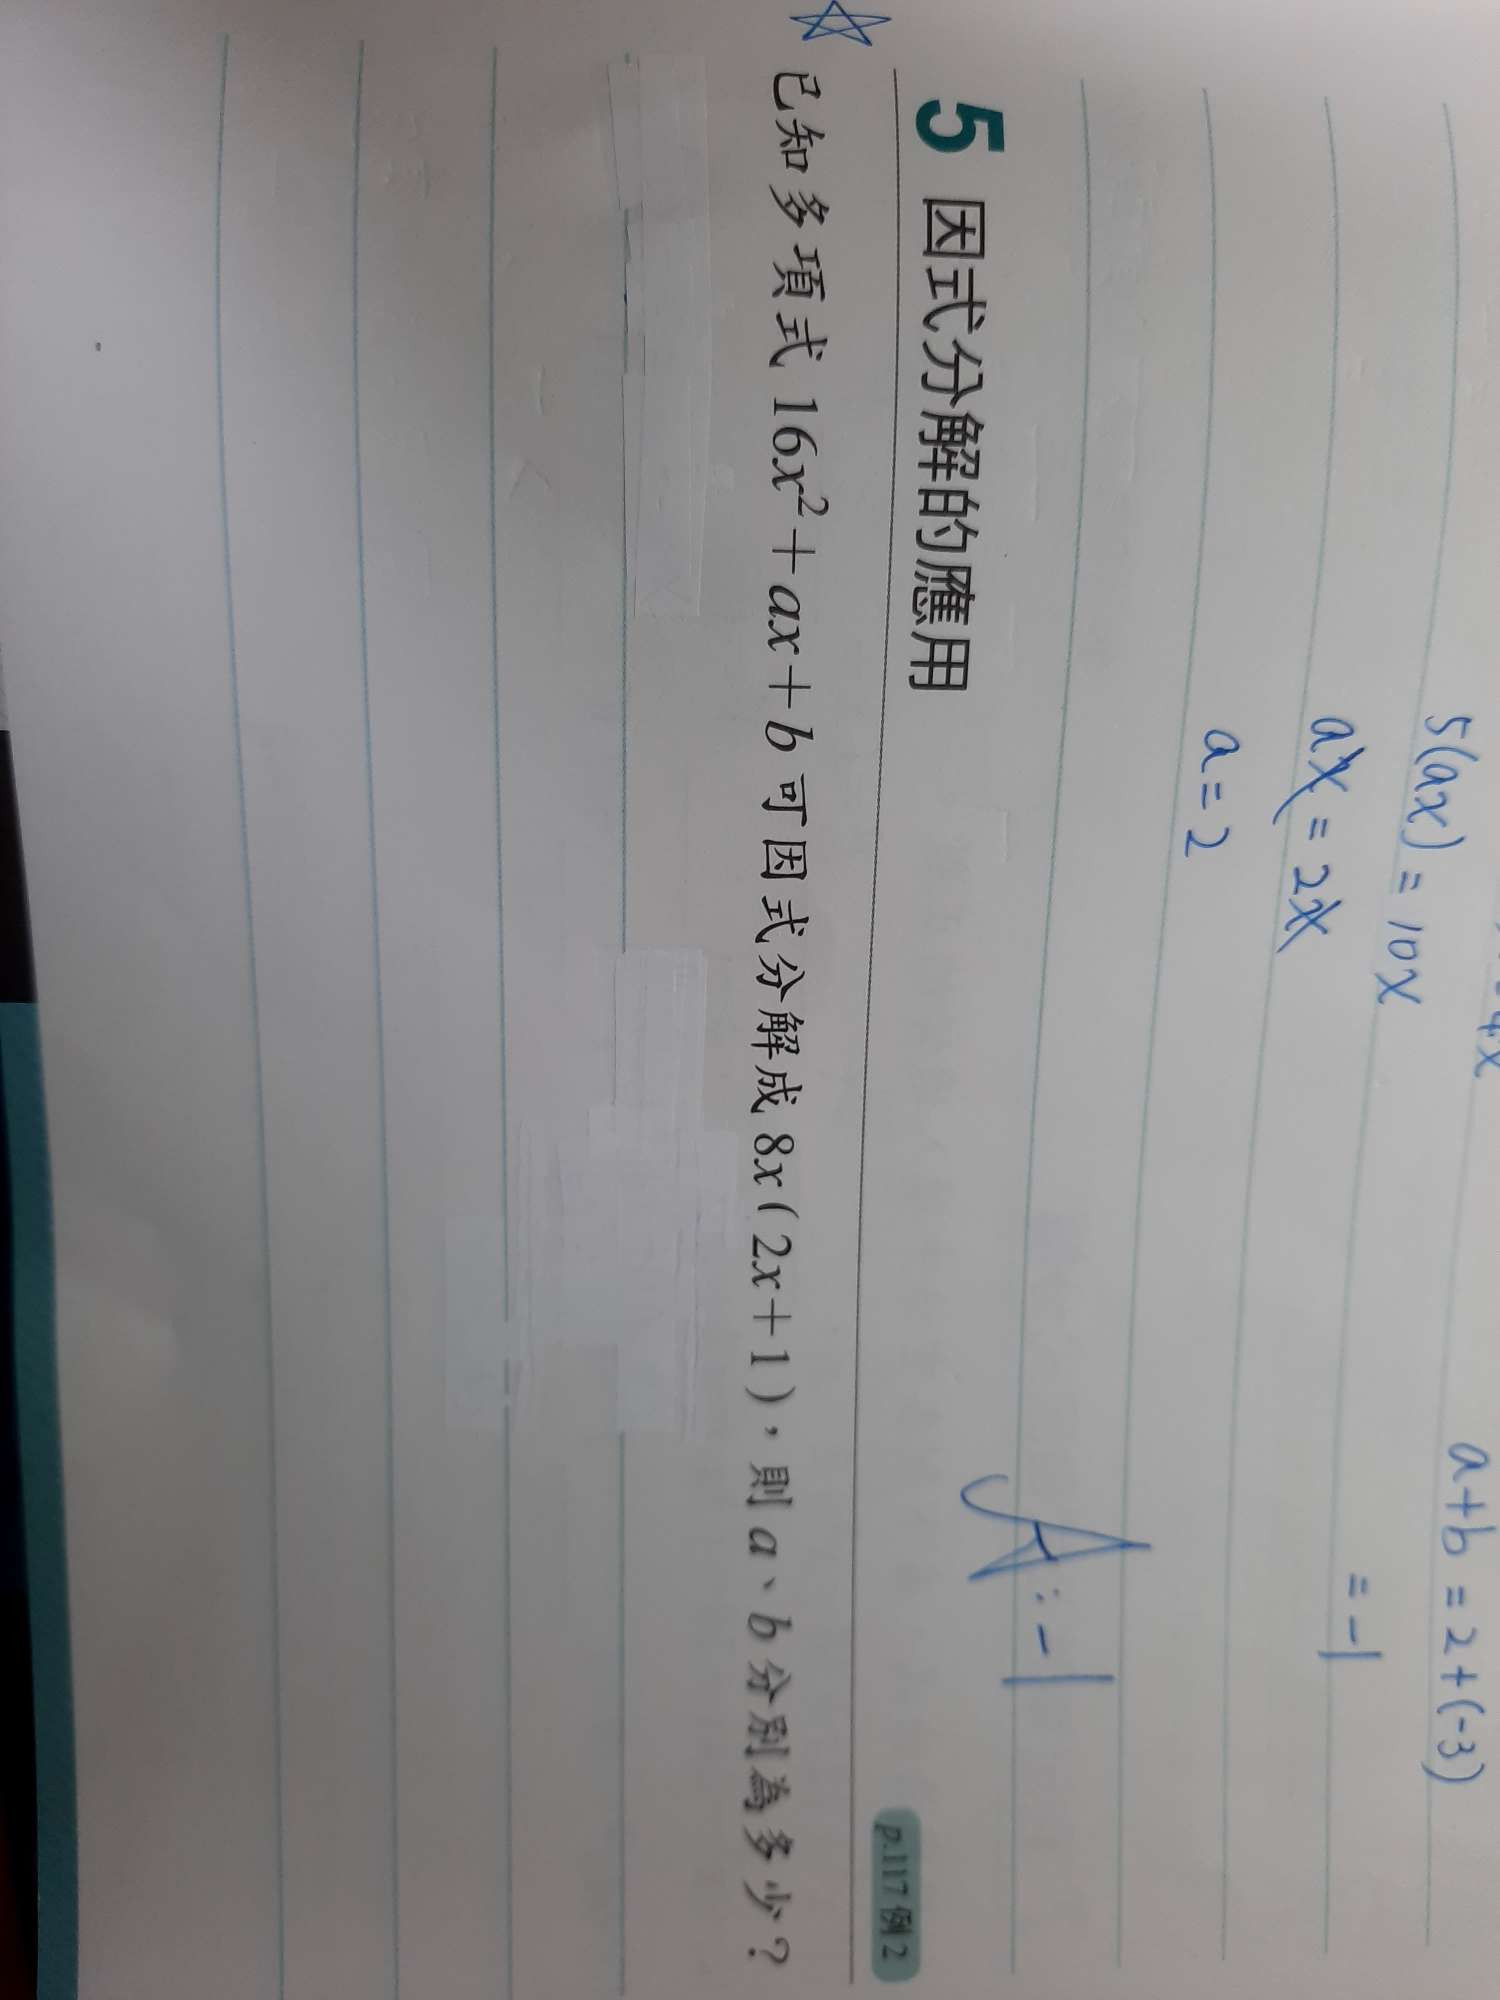 5(ax) = 10x
ax = 2x
a = 2
a+b = 2+(-3)
= -1
A: -1
5 因式分解的應用
p.117 例 2
已知多項式 16x²+ax+b 可因式分解成 8x(2x+1)，則 a、b 分別為多少？